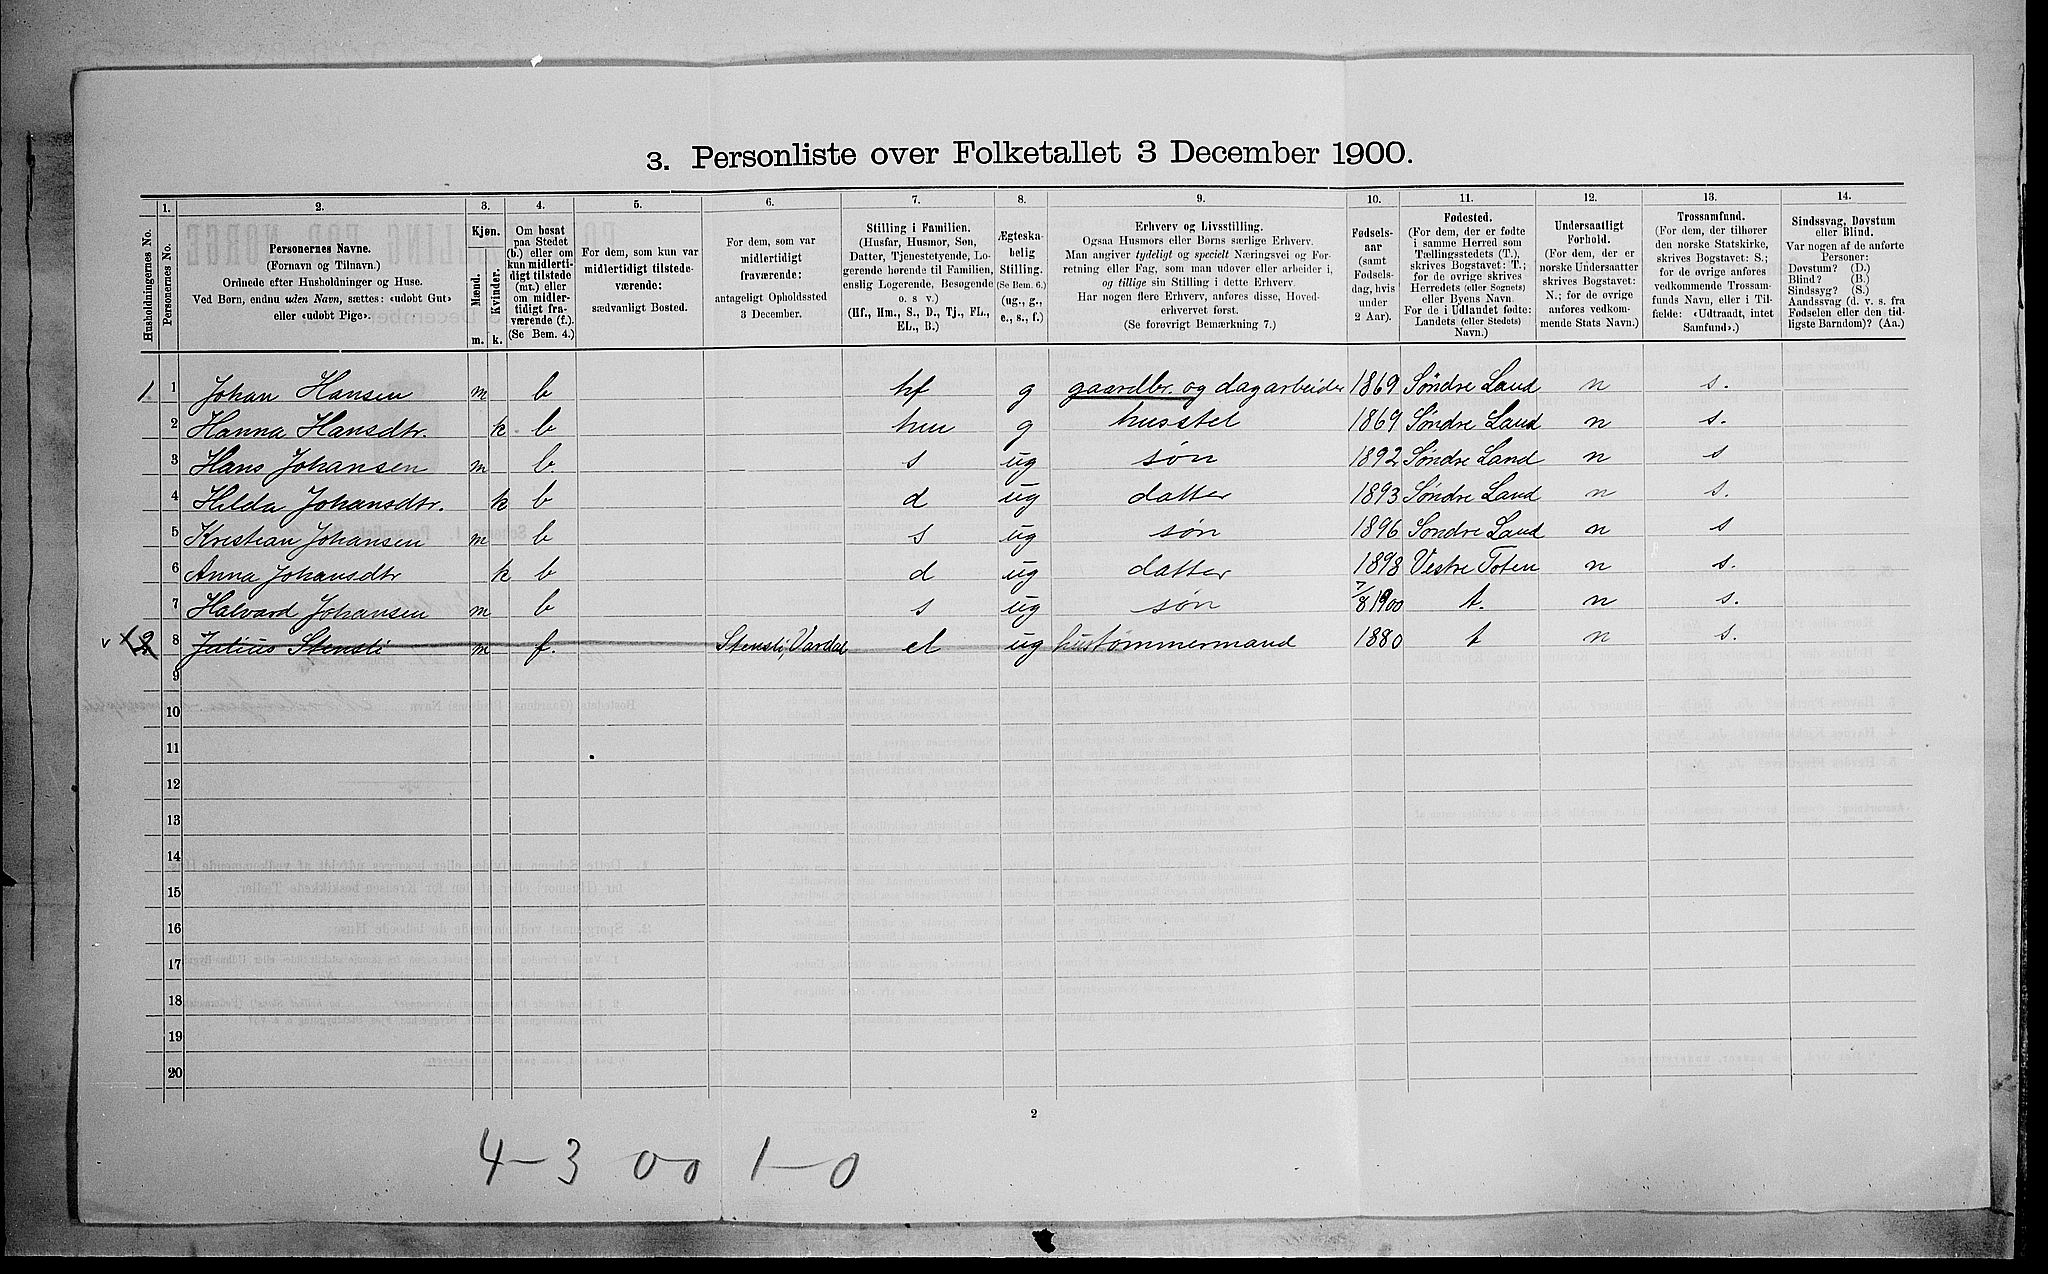 3. Personliste over Folketallet 3 December 1900.
Husholdningernes No.
1.
Personernes No.
2.
Personernes Navne.
(Fornavn og Tilnavn.)
Ordnede efter Husholdninger og Huse.
Ved Børn, endnu uden Navn, sættes: «udobt Gut»
eller «udobt Pige».
3.
Kjøn.
Mænd.
Kvinder.
m.
k.
4.
Om bosat
paa Stedet
(b.) eller om
kun midlerti-
digt tilstede
(mt.) eller
om midler-
tidigt fra-
værende (f.).
(Se Bem. 4.)
5.
For dem, som kun var
midlertidigt tilstede-
værende:
sædvanligt Bosted.
6.
For dem, som var
midlertidigt
fraværende:
antageligt Opholdssted
3 December.
7.
Stilling i Familien.
(Husfar, Husmor, Søn,
Datter, Tjenestetyende, Lo-
gerende hørende til Familien,
enslig Logerende, Besøgende
o. s. v.)
(Hf., Hm., S., D., Tj., FL.,
EL., B.)
8.
Ægteska-
belig
Stilling.
(Se Bem. 6.)
(ug., g.,
e., s., f.)
9.
Erhverv og Livsstilling.
Ogsaa Husmors eller Børns særlige Erhverv.
Man angiver tydeligt og specielt Næringsvei og For-
retning eller Fag, som man udøver eller arbeider i,
og tillige sin Stilling i dette Erhverv.
Har nogen flere Erhverv, anføres disse, Hoved-
erhvervet først.
(Se forøvrigt Bemærkning 7.)
10.
Fødsels-
aar
(samt
Fødsels-
dag, hvis
under
2 Aar).
11.
Fødested.
(For dem, der er fødte
i samme Herred som
Tællingsstedets (T.),
skrives Bogstavet: T.;
for de øvrige skrives
Herredets (eller Sognets)
eller Byens Navn.
For de i Udlandet fødte:
Landets (eller Stedets)
Navn.)
12.
Undersaatligt
Forhold.
(For dem, der er
norske Undersaatter
skrives Bogstavet:
N.; for de øvrige
anføres vedkom-
mende Stats Navn.)
13.
Trossamfund.
(For dem, der tilhører
den norske Statskirke,
skrives Bogstavet: S.;
for de øvrige anføres
vedkommende Trossam-
funds Navn, eller i Til-
fælde: «Udtraadt, intet
Samfund».)
14.
Sindssvag, Døvstum
eller Blind.
Var nogen af de anførte
Personer:
Døvstum? (D.)
Blind? (B.)
Sindssyg? (S.)
Aandssvag (d. v. s. fra
Fødselen eller den tid-
ligste Barndom)? (Aa.)
1. 1 Johan Hansen m b hf g gaardbr. og dagarbeider 1869 Søndre Land n s.
2 Hanna Hansdtr. k b hm g husstel 1869 Søndre Land n s.
3 Hans Johansen m b. s ug søn 1892 Søndre Land n s
4 Hilda Johansdtr. k b d ug datter 1893 Søndre Land n s.
5 Kristian Johansen m b s ug søn 1896 Søndre Land n s
6 Anna Johansdtr k b d ug datter 1898 Vestre Toten n s.
7 Halvard Johansen m b s ug søn 7/8 1900 t. n s.
v 2 8 Julius Stensli m f. Stensli, Vardal el ug hustømmermand 1880 t n s.
9
10
11
12
13
14
15
16
17
18
19
20
2
4-3 00 1-0